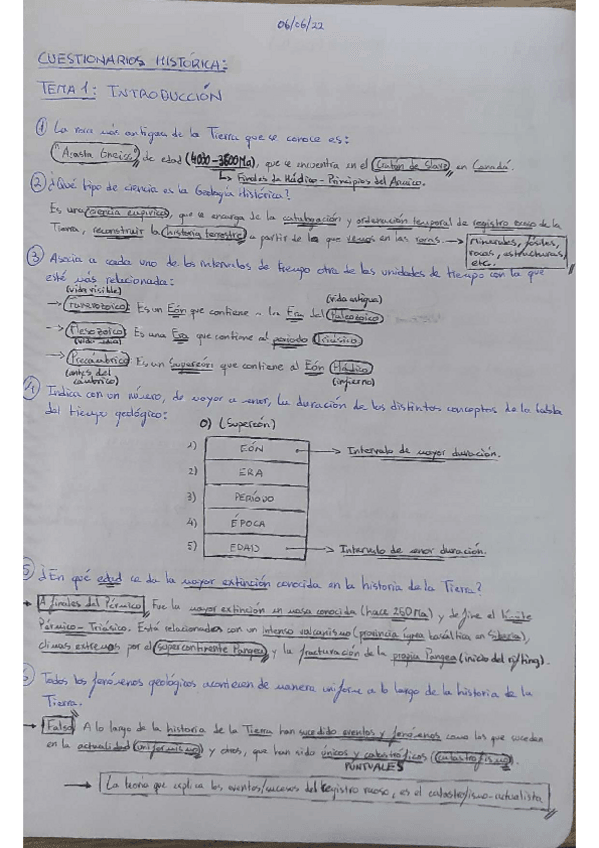 06/06/22
CUESTIONARIOS HISTÓRICA:
TEMA 1: INTRODUCCIÓN
① La roca más antigua de la Tierra que se conoce es:
"Acasta Gneiss" de edad (4030-3600Ma), que se encuentra en el Cratón de Slave en Canadá.
↳ Finales de Hádico - Principios del Arcaico.
② ¿Qué tipo de ciencia es la Geología Histórica?
Es una ciencia empírica, que se encarga de la catalogación y ordenación temporal de registro rocoso de la
Tierra, reconstruir la historia terrestre a partir de lo que vemos en las rocas. → Minerales, fósiles,
rocas, estructuras,
etc.
③ Asocia a cada uno de los intervalos de tiempo otra de las unidades de tiempo con la que
esté más relacionada:
(vida visible) (vida antigua)
→ Fanerozoico: Es un Eón que contiene a la Era del Paleozoico
→ Mesozoico: Es una Era que contiene al período Triásico
(vida media)
→ Precámbrico: Es un Supereón que contiene al Eón Hádico
(antes del cámbrico) (infierno)
④ Indica con un número, de mayor a menor, la duración de los distintos conceptos de la tabla
del tiempo geológico:
0) (Supereón)
1) EÓN → Intervalo de mayor duración.
2) ERA
3) PERÍODO
4) ÉPOCA
5) EDAD → Intervalo de menor duración.
⑤ ¿En qué edad se da la mayor extinción conocida en la historia de la Tierra?
→ A finales del Pérmico. Fue la mayor extinción en masa conocida (hace 250Ma) y define el límite
Pérmico-Triásico. Está relacionada con un intenso volcanismo (provincia ígnea basáltica en Siberia),
climas extremos por el supercontinente Pangea y la fracturación de la propia Pangea (inicio del rifting).
⑥ Todos los fenómenos geológicos acontecen de manera uniforme a lo largo de la historia de la
Tierra.
→ Falso. A lo largo de la historia de la Tierra han sucedido eventos y fenómenos como los que suceden
en la actualidad (uniformismo) y otros, que han sido únicos y catastróficos (catastrofismo).
PUNTUALES
→ La teoría que explica los eventos/sucesos del registro rocoso, es el catastrofismo-actualista